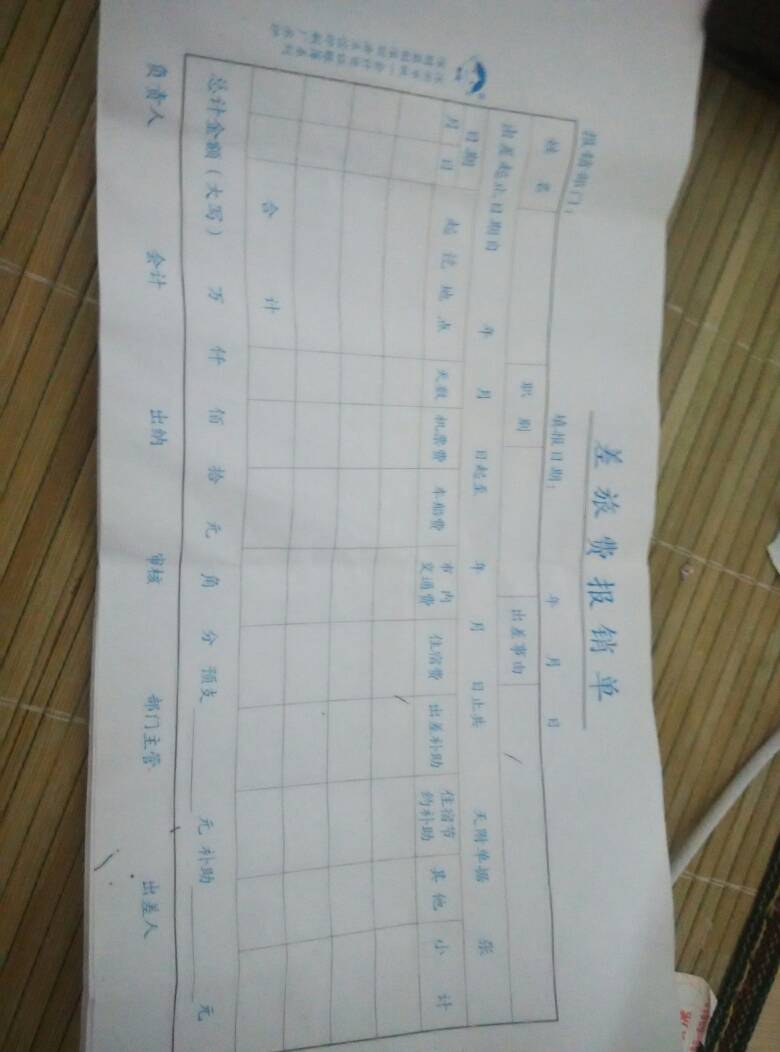 差旅费报销单
报销部门： 填报日期： 年 月 日
姓名 职别 出差事由
出差起止日期自 年 月 日起至 年 月 日止共 天附单据 张
日期 起讫地点 天数 机票费 车船费 市内交通费 住宿费 出差补助 住宿节约补助 其他 小计
月 日
合计
总计金额（大写） 万 仟 佰 拾 元 角 分 预支 元 补助 元
负责人 会计 出纳 审核 部门主管 出差人